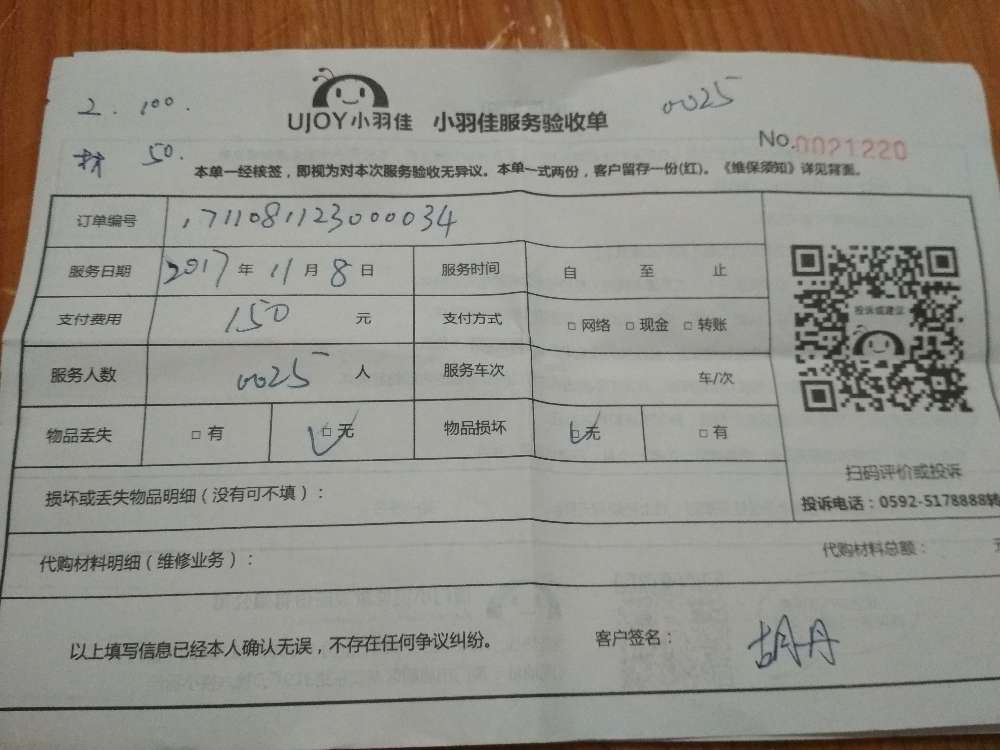 2. 100.
0025
UJOY小羽佳 小羽佳服务验收单
No.0021220
50.
本单一经核签，即视为对本次服务验收无异议。本单一式两份，客户留存一份(红)。《维保须知》详见背面。
订单编号 1711081123000034
服务日期 2017 年 11 月 8 日 服务时间 自 至 止
支付费用 150 元 支付方式 □ 网络 □ 现金 □ 转账
投诉或建议
服务人数 0025 人 服务车次 车/次
物品丢失 □ 有 □ 无 物品损坏 □ 无 □ 有
扫码评价或投诉
损坏或丢失物品明细（没有可不填）：
投诉电话：0592-5178888转
代购材料明细（维修业务）： 代购材料总额：
以上填写信息已经本人确认无误，不存在任何争议纠纷。 客户签名： 胡丹